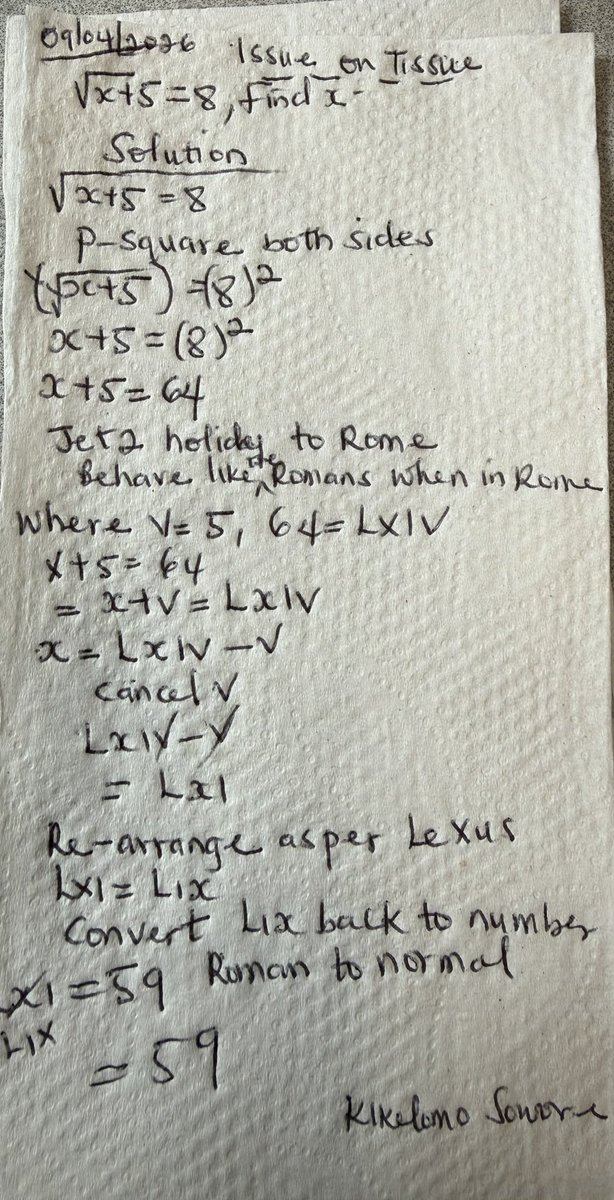 09/04/2026 Issue on Tissue
√x+5 = 8, find x
Solution
√x+5 = 8
P-Square both sides
(√x+5) = (8)²
x+5 = (8)²
x+5 = 64
Jet2 holiday to Rome
Behave like the Romans when in Rome
Where V = 5, 64 = LXIV
x+5 = 64
= x+V = LXIV
x = LXIV - V
Cancel V
LXIV - V
= LXI
Re-arrange as per Lexus
LXI = LIX
Convert LIX back to number
LXI = 59 Roman to normal
LIX
= 59
Kikelomo Sowore